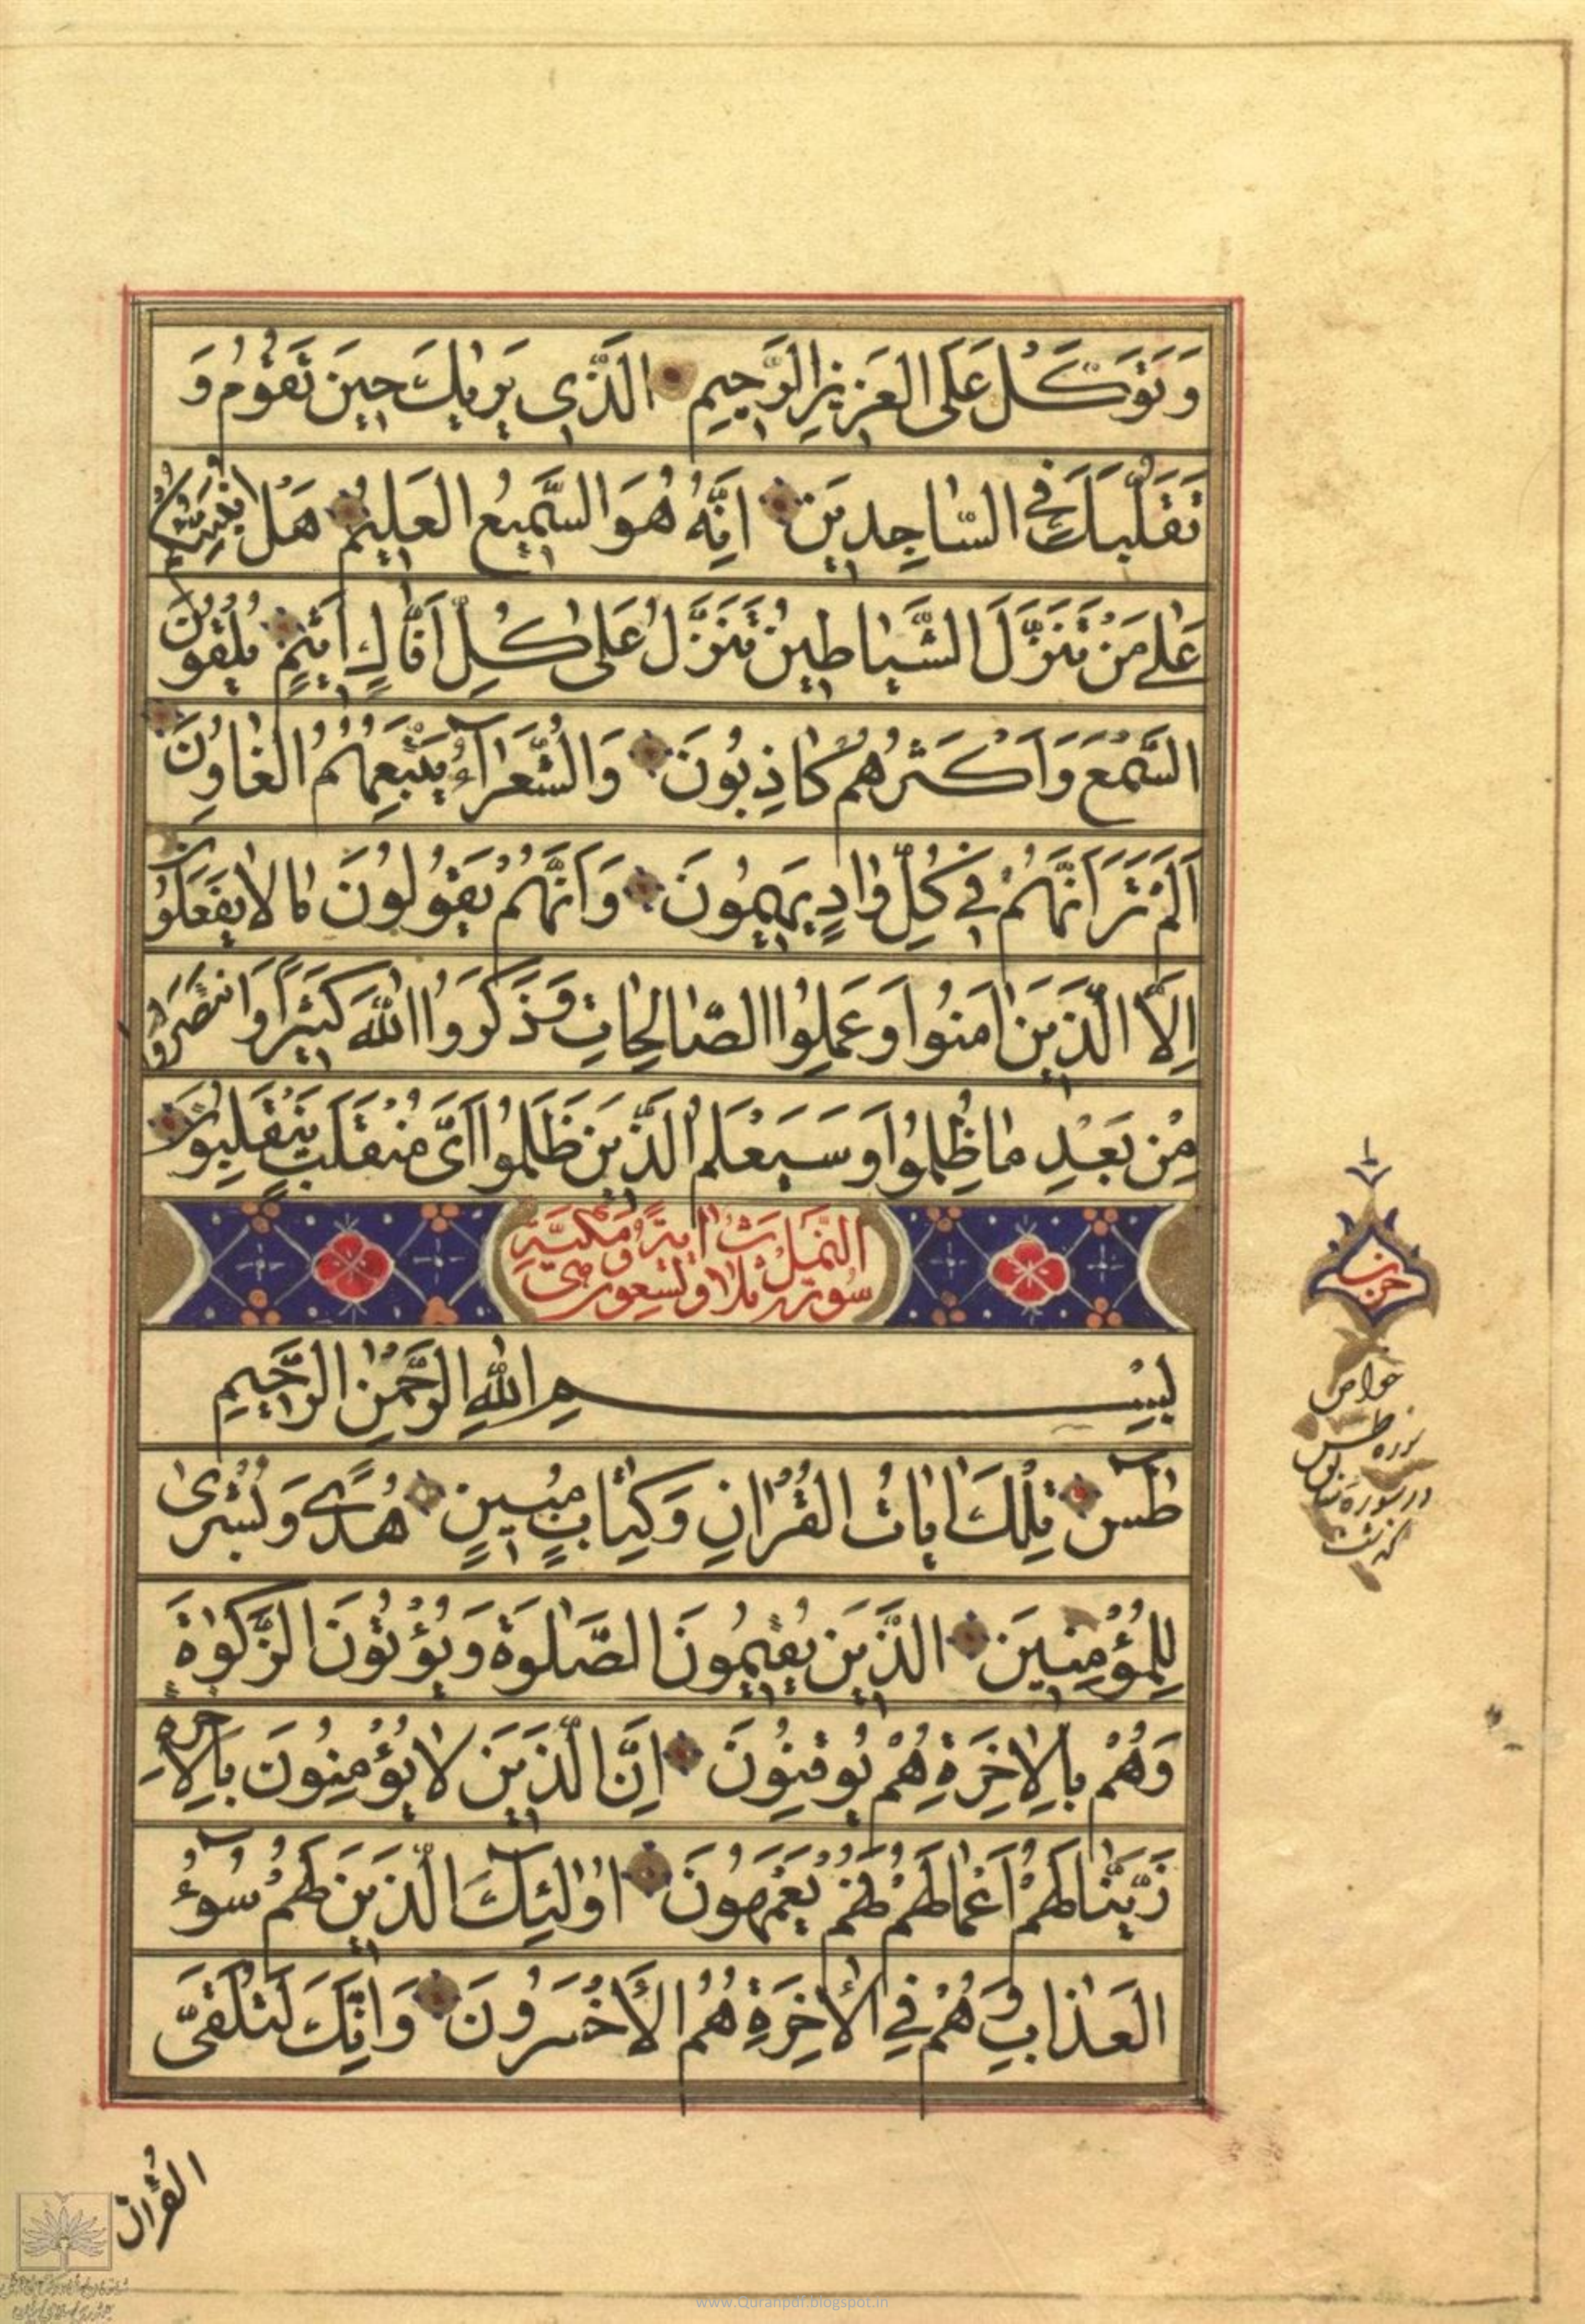 وَتَوَكَّلْ عَلَى العَزِيزِ الرَّحِيمِ الَّذِي يَرٰيكَ حِينَ تَقُومُ وَ
تَقَلُّبَكَ فِي السّٰاجِدِينَ اِنَّهُ هُوَ السَّمِيعُ العَلِيمُ هَلْ اُنَبِّئُكُمْ
عَلٰى مَنْ تَنَزَّلُ الشَّيٰاطِينُ تَنَزَّلُ عَلٰى كُلِّ اَفّٰاكٍ اَثِيمٍ يُلْقُونَ
السَّمْعَ وَاَكْثَرُهُمْ كٰاذِبُونَ وَالشُّعَرٰآءُ يَتَّبِعُهُمُ الغٰاوُنَ
اَلَمْ تَرَ اَنَّهُمْ فِي كُلِّ وٰادٍ يَهِيمُونَ وَاَنَّهُمْ يَقُولُونَ مٰا لٰا يَفْعَلُونَ
اِلَّا الَّذِينَ اٰمَنُوا وَعَمِلُوا الصّٰالِحٰاتِ وَذَكَرُوا اللّٰهَ كَثِيرًا وَانْتَصَرُوا
مِنْ بَعْدِ مٰا ظُلِمُوا وَسَيَعْلَمُ الَّذِينَ ظَلَمُوا اَيَّ مُنْقَلَبٍ يَنْقَلِبُونَ
سُورَة النَّمل ثلاث وتسعون اية وهى مكيّة
بِسْمِ اللّٰهِ الرَّحْمٰنِ الرَّحِيمِ
طٰسٓ تِلْكَ اٰيٰاتُ القُرْاٰنِ وَكِتٰابٍ مُبِينٍ هُدًى وَبُشْرٰى
لِلْمُؤْمِنِينَ الَّذِينَ يُقِيمُونَ الصَّلٰوةَ وَيُؤْتُونَ الزَّكٰوةَ
وَهُمْ بِالْاٰخِرَةِ هُمْ يُوقِنُونَ اِنَّ الَّذِينَ لٰا يُؤْمِنُونَ بِالْاٰخِرَةِ
زَيَّنّٰا لَهُمْ اَعْمٰالَهُمْ فَهُمْ يَعْمَهُونَ اُولٰٓئِكَ الَّذِينَ لَهُمْ سُوٓءُ
العَذٰابِ وَهُمْ فِي الْاٰخِرَةِ هُمُ الْاَخْسَرُونَ وَاِنَّكَ لَتُلَقَّى
القُرْاٰنَ
حزب
خواص
سوره طس
در سوره سابق
گذشت
www.Quranpdf.blogspot.in